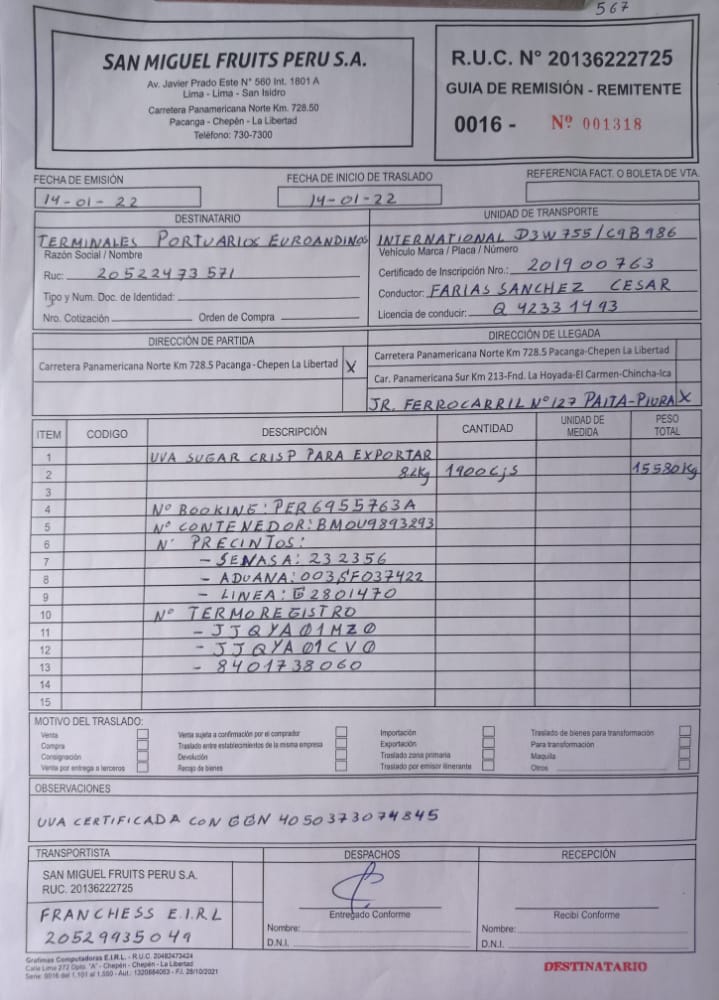 567
SAN MIGUEL FRUITS PERU S.A.
Av. Javier Prado Este N° 560 Int. 1801 A
Lima - Lima - San Isidro
Carretera Panamericana Norte Km. 728.50
Pacanga - Chepén - La Libertad
Teléfono: 730-7300
R.U.C. N° 20136222725
GUIA DE REMISIÓN - REMITENTE
0016 - Nº 001318
FECHA DE EMISIÓN
14-01-22
FECHA DE INICIO DE TRASLADO
14-01-22
REFERENCIA FACT. O BOLETA DE VTA.
DESTINATARIO
TERMINALES PORTUARIOS EUROANDINOS
Razón Social / Nombre
Ruc: 20522473571
Tipo y Num. Doc. de Identidad:
Nro. Cotización Orden de Compra
UNIDAD DE TRANSPORTE
INTERNATIONAL D3W755/C9B986
Vehículo Marca / Placa / Número
Certificado de Inscripción Nro.: 201900763
Conductor: FARIAS SANCHEZ CESAR
Licencia de conducir: Q 42331493
DIRECCIÓN DE PARTIDA
Carretera Panamericana Norte Km 728.5 Pacanga-Chepen La Libertad X
DIRECCIÓN DE LLEGADA
Carretera Panamericana Norte Km 728.5 Pacanga-Chepen La Libertad
Car. Panamericana Sur Km 213-Fnd. La Hoyada-El Carmen-Chincha-Ica
JR. FERROCARRIL N°127 PAITA-PIURA X
ITEM CODIGO DESCRIPCIÓN CANTIDAD UNIDAD DE MEDIDA PESO TOTAL
1 UVA SUGAR CRISP PARA EXPORTAR
2 8.2kg 1900 Cjs 15580kg
3
4 N° BOOKING: PER6955763A
5 N° CONTENEDOR: BMOU9893293
6 N° PRECINTOS:
7 - SENASA: 232356
8 - ADUANA: 003SF037422
9 - LINEA: G2801470
10 N° TERMOREGISTRO
11 - JJQYA01MZ0
12 - JJQYA01CV0
13 - 8401738060
14
15
MOTIVO DEL TRASLADO:
Venta
Compra
Consignación
Venta por entrega a terceros
Venta sujeta a confirmación por el comprador
Traslado entre establecimientos de la misma empresa
Devolución
Recojo de bienes
Importación
Exportación
Traslado zona primaria
Traslado por emisor itinerante
Traslado de bienes para transformación
Para transformación
Maquila
Otros
OBSERVACIONES
UVA CERTIFICADA CON GGN 4050373074845
TRANSPORTISTA
SAN MIGUEL FRUITS PERU S.A.
RUC. 20136222725
FRANCHESS E.I.RL
20529935049
DESPACHOS
Entregado Conforme
Nombre:
D.N.I.
RECEPCIÓN
Recibi Conforme
Nombre:
D.N.I.
Grafimas Computadoras E.I.R.L. - R.U.C. 20482473424
Calle Lima 272 Dpto. "A" - Chepén - Chepén - La Libertad
Serie: 0016 del 1,101 al 1,500 - Aut.: 1320884063 - F.I. 28/10/2021
DESTINATARIO